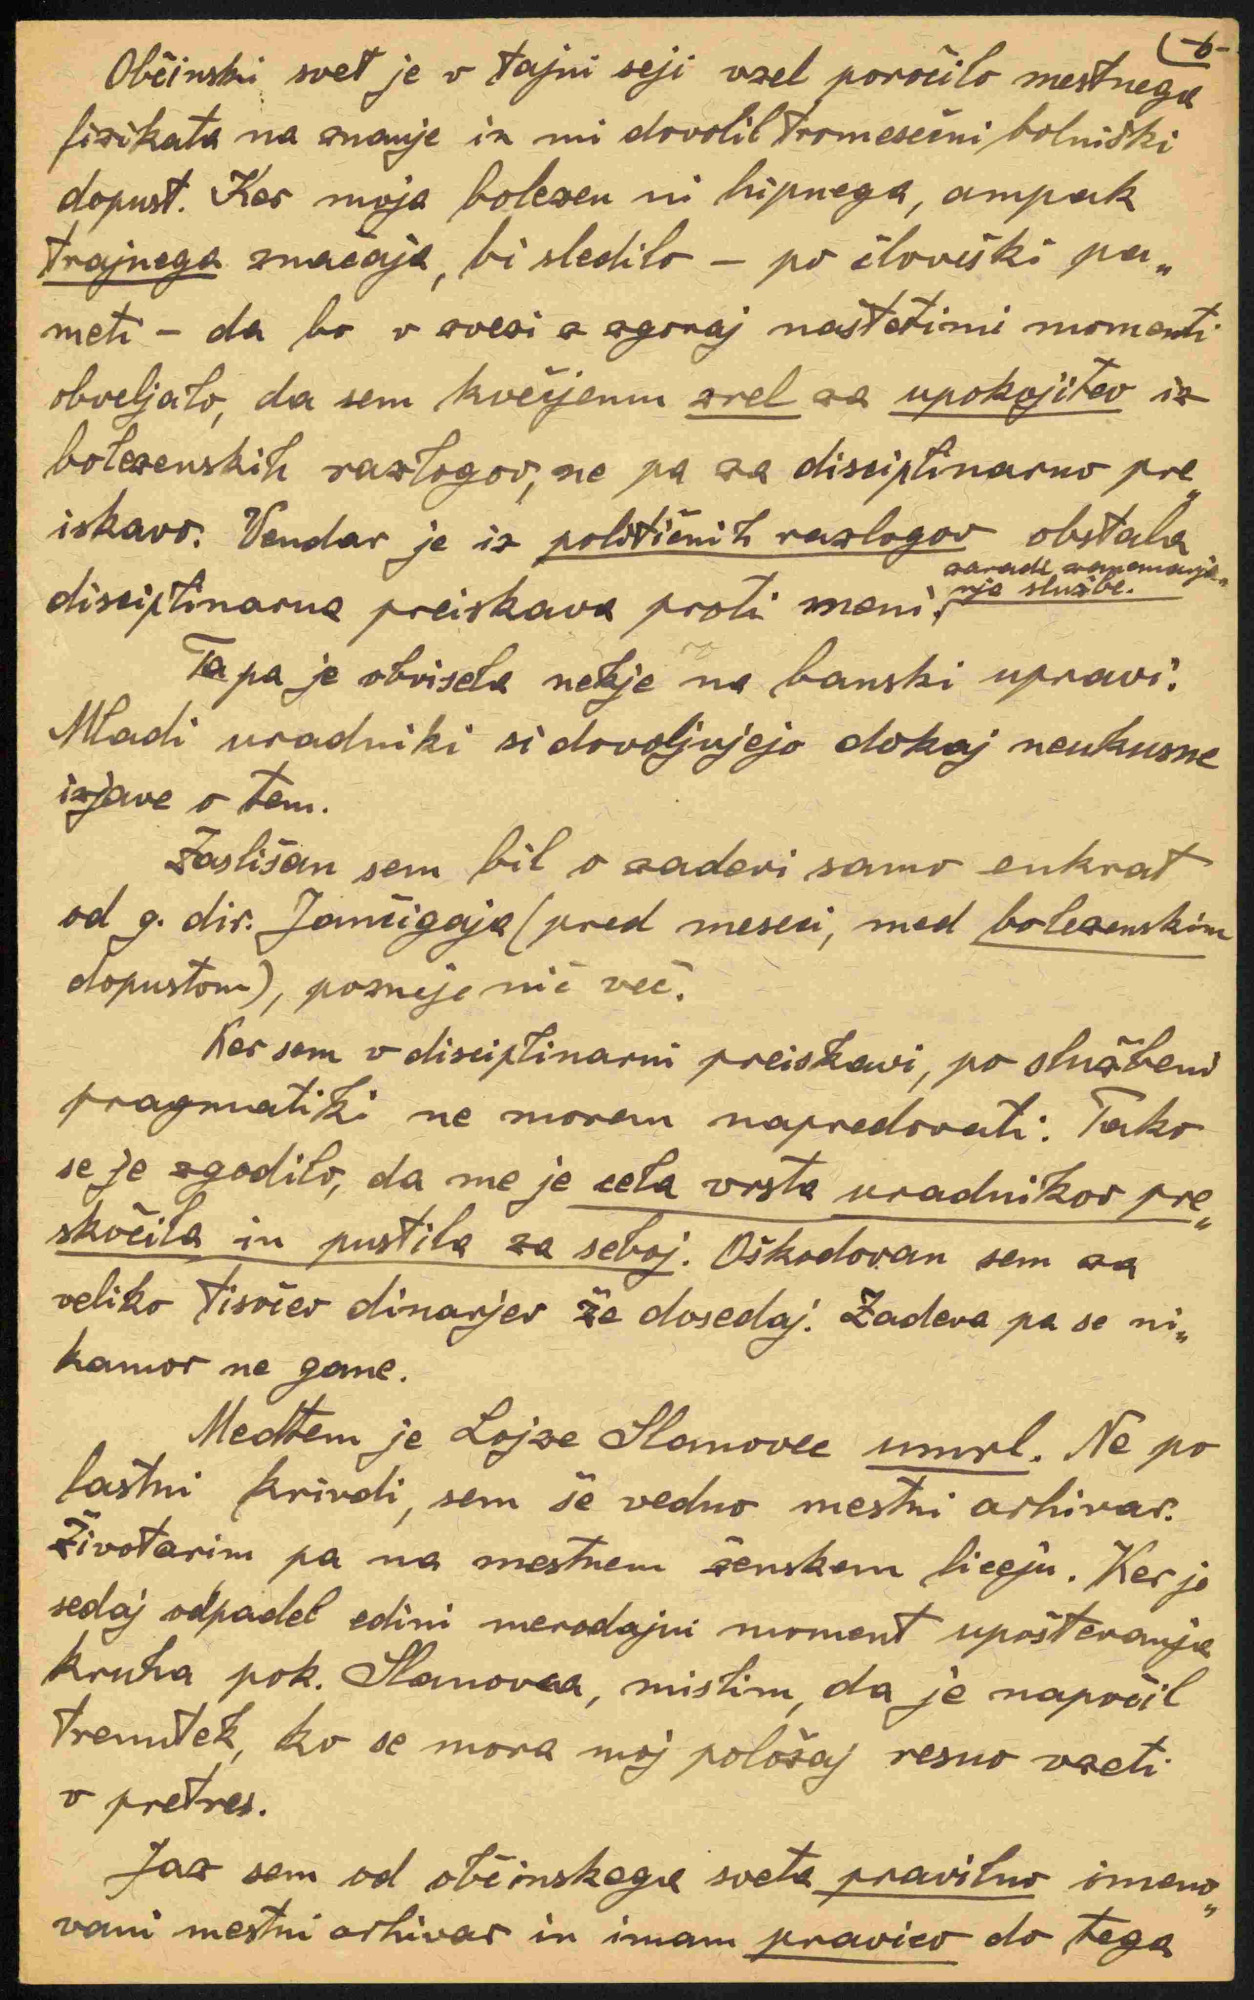 -6-
Občinski svet je v tajni seji vzel poročilo mestnega
fizikata na znanje in mi dovolil tromesečni bolniški
dopust. Ker moja bolezen ni hipnega, ampak
trajnega značaja, bi sledilo – po človeški pa„
meti – da bo v zvezi z zgoraj naštetimi momenti
obveljalo, da sem kvečjemu zrel za upokojitev iz
bolezenskih razlogov, ne pa za disciplinarno pre„
iskavo. Vendar je iz političnih razlogov obstala
disciplinarna preiskava proti meni zaradi zanemarja„
nja službe.
Ta pa je obvisela nekje na banski upravi.
Mladi uradniki si dovoljujejo dokaj neukusne
izjave o tem.
Zaslišan sem bil o zadevi samo enkrat
od g. dir. Jančigaja (pred meseci, med bolezenskim
dopustom), pozneje nič več.
Ker sem v disciplinarni preiskavi, po službeni
pragmatiki ne morem napredovati. Tako
se je zgodilo, da me je cela vrsta uradnikov pre„
skočila in pustila za seboj. Oškodovan sem za
veliko tisočev dinarjev že dosedaj. Zadeva pa se ni„
kamor ne gane.
Medtem je Lojze Slanovec umrl. Ne po
lastni krivdi, sem še vedno mestni arhivar.
Životarim pa na mestnem ženskem liceju. Ker je
sedaj odpadel edini merodajni moment upoštevanja
kruha pok. Slanovca, mislim, da je napočil
trenutek, ko se mora moj položaj resno vzeti
v pretres.
Jaz sem od občinskega sveta pravilno imeno„
vani mestni arhivar in imam pravico do tega